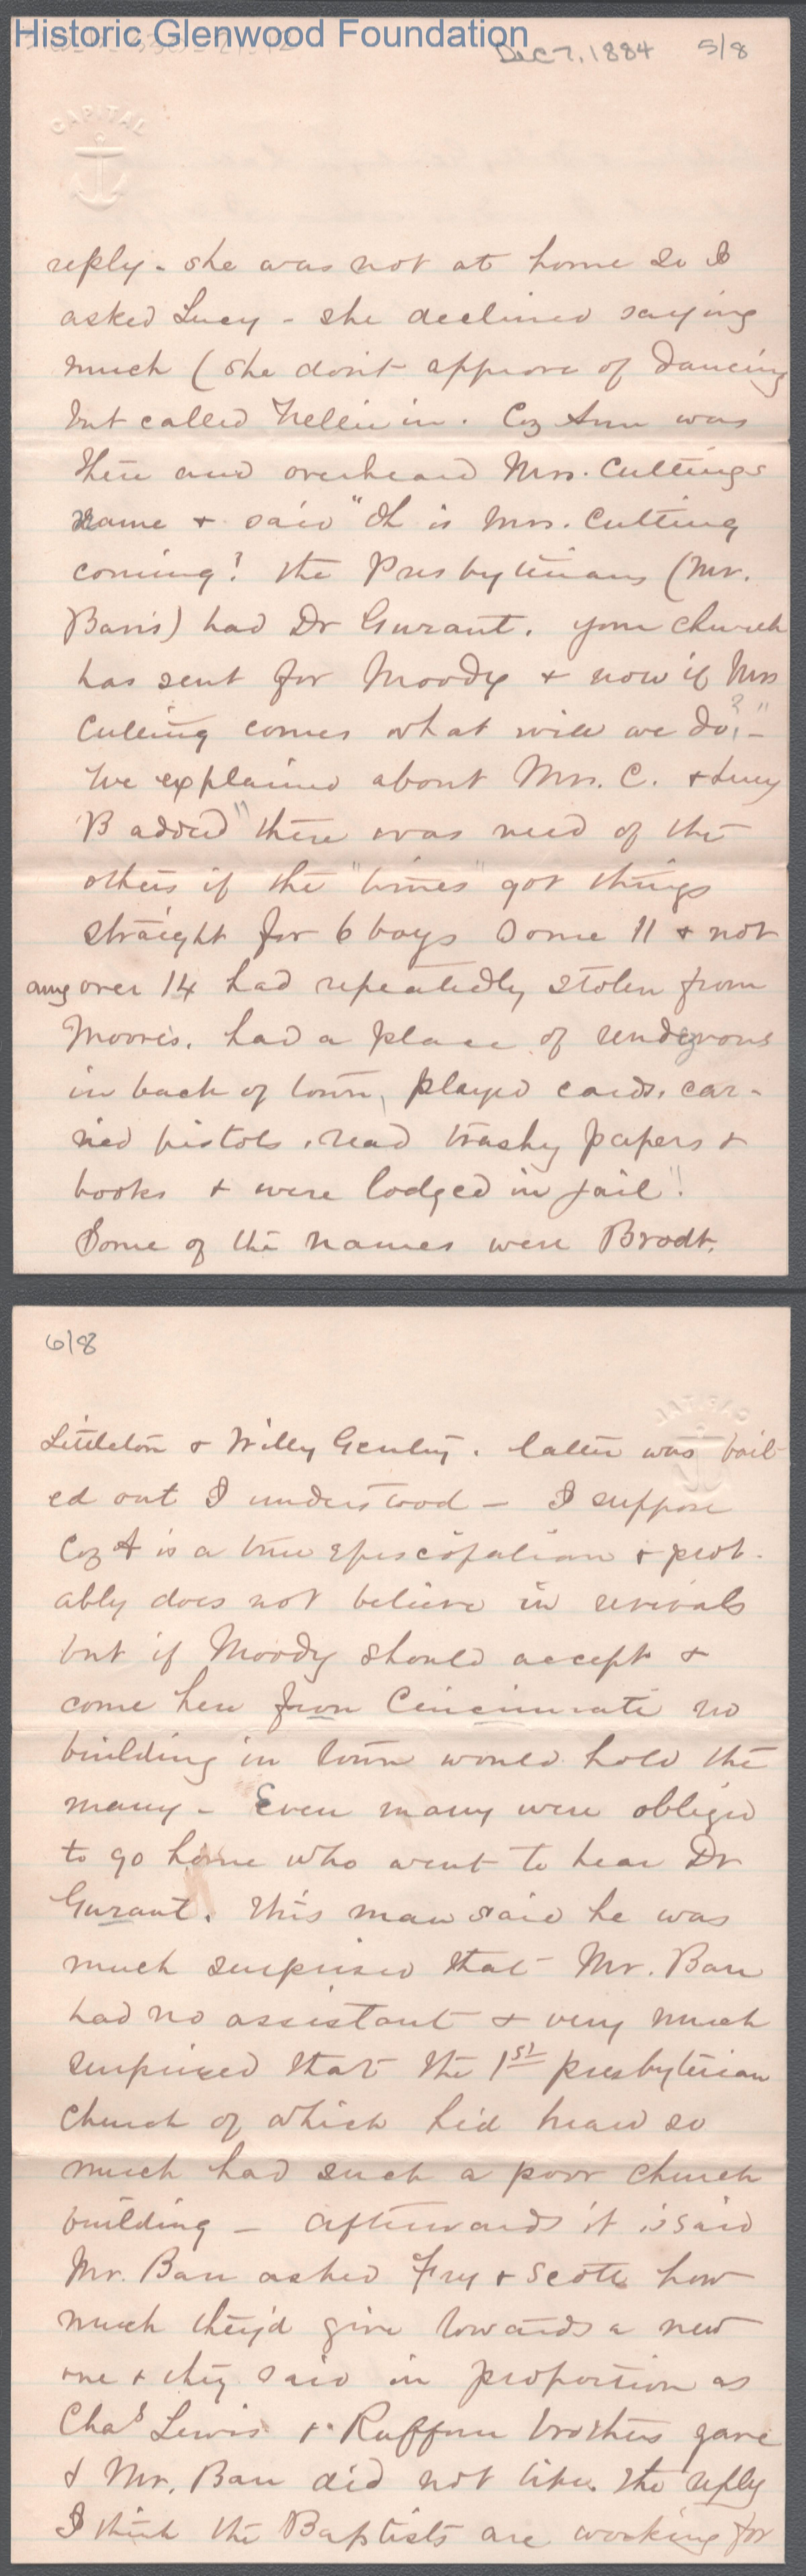 Historic Glenwood Foundation
Dec 7, 1884 5/8
CAPITAL
reply - she was not at home so I
asked Lucy - she declined saying
much (she don't approve of dancing
but called Nellie in. Coz Ann was
there and overheard Mrs. Cuttings
name & said "Oh is Mrs. Cutting
coming! the Presbyterians (Mr.
Barrs) had Dr Gurant. your church
has sent for Moody & now if Mrs
Cutting comes what will we do?" -
We explained about Mrs. C. & Lucy
B added "there was need of the
others if the "times" got things
straight for 6 boys some 11 & not
any over 14 had repeatedly stolen from
Moores. had a place of rendezvous
in back of town, played cards, car-
ried pistols, read trashy papers &
books & were lodged in jail".
Some of the names were Brodt,
6/8
CAPITAL
Littleton & Willy Gentry. latter was bail-
ed out I understood - I suppose
Coz A is a true Episcopalian & prob-
ably does not believe in revivals
but if Moody should accept &
come here from Cincinnati no
building in town would hold the
many - Even many were obliged
to go home who went to hear Dr
Gurant. This man said he was
much surprised that Mr. Barr
had no assistant & very much
surprised that the 1st presbyterian
church of which he'd heard so
much had such a poor church
building - afterwards it is said
Mr. Barr asked Fry & Scott how
much they'd give towards a new
one & they said in proportion as
Chas Lewis & Ruffner brothers gave
& Mr. Barr did not like the reply
I think the Baptists are working for